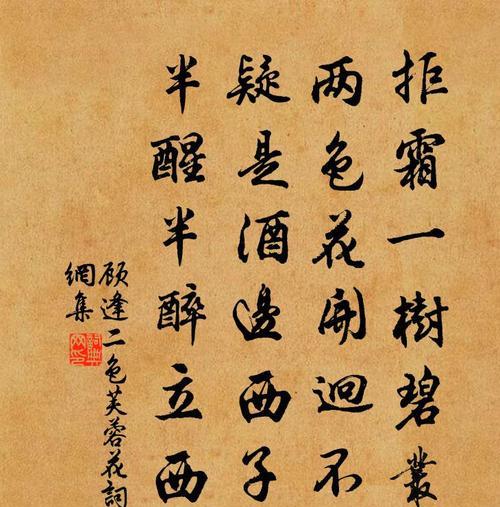 拒霜一樹碧叢
两色花開迥不
疑是酒邊西子
半醒半醉立西
顾逢二色芙蓉花詞
網集
詞典
网印